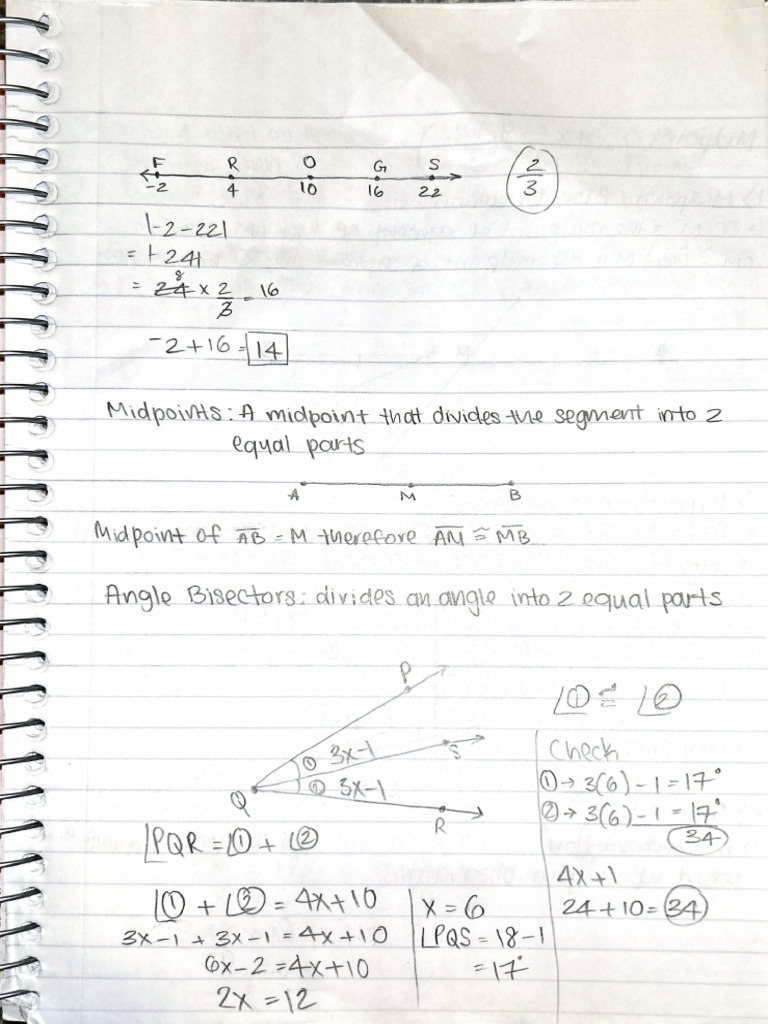 F R O G S
-2 4 10 16 22
2/3
|-2-22|
= |-24|
= 24 8 × 2/3 = 16
-2+16 = 14
Midpoints: A midpoint that divides the segment into 2
equal parts
A M B
Midpoint of AB = M therefore AM ≅ MB
Angle Bisectors: divides an angle into 2 equal parts
P
∠① ≅ ∠②
① 3x-1
S
② 3x-1
Q
R
∠PQR = ∠① + ∠②
∠① + ∠② = 4x+10
3x-1 + 3x-1 = 4x+10
6x-2 = 4x+10
2x = 12
x = 6
∠PQS = 18-1
= 17°
Check
① → 3(6) - 1 = 17°
② → 3(6) - 1 = 17°
34
4x+1
24+10 = 34